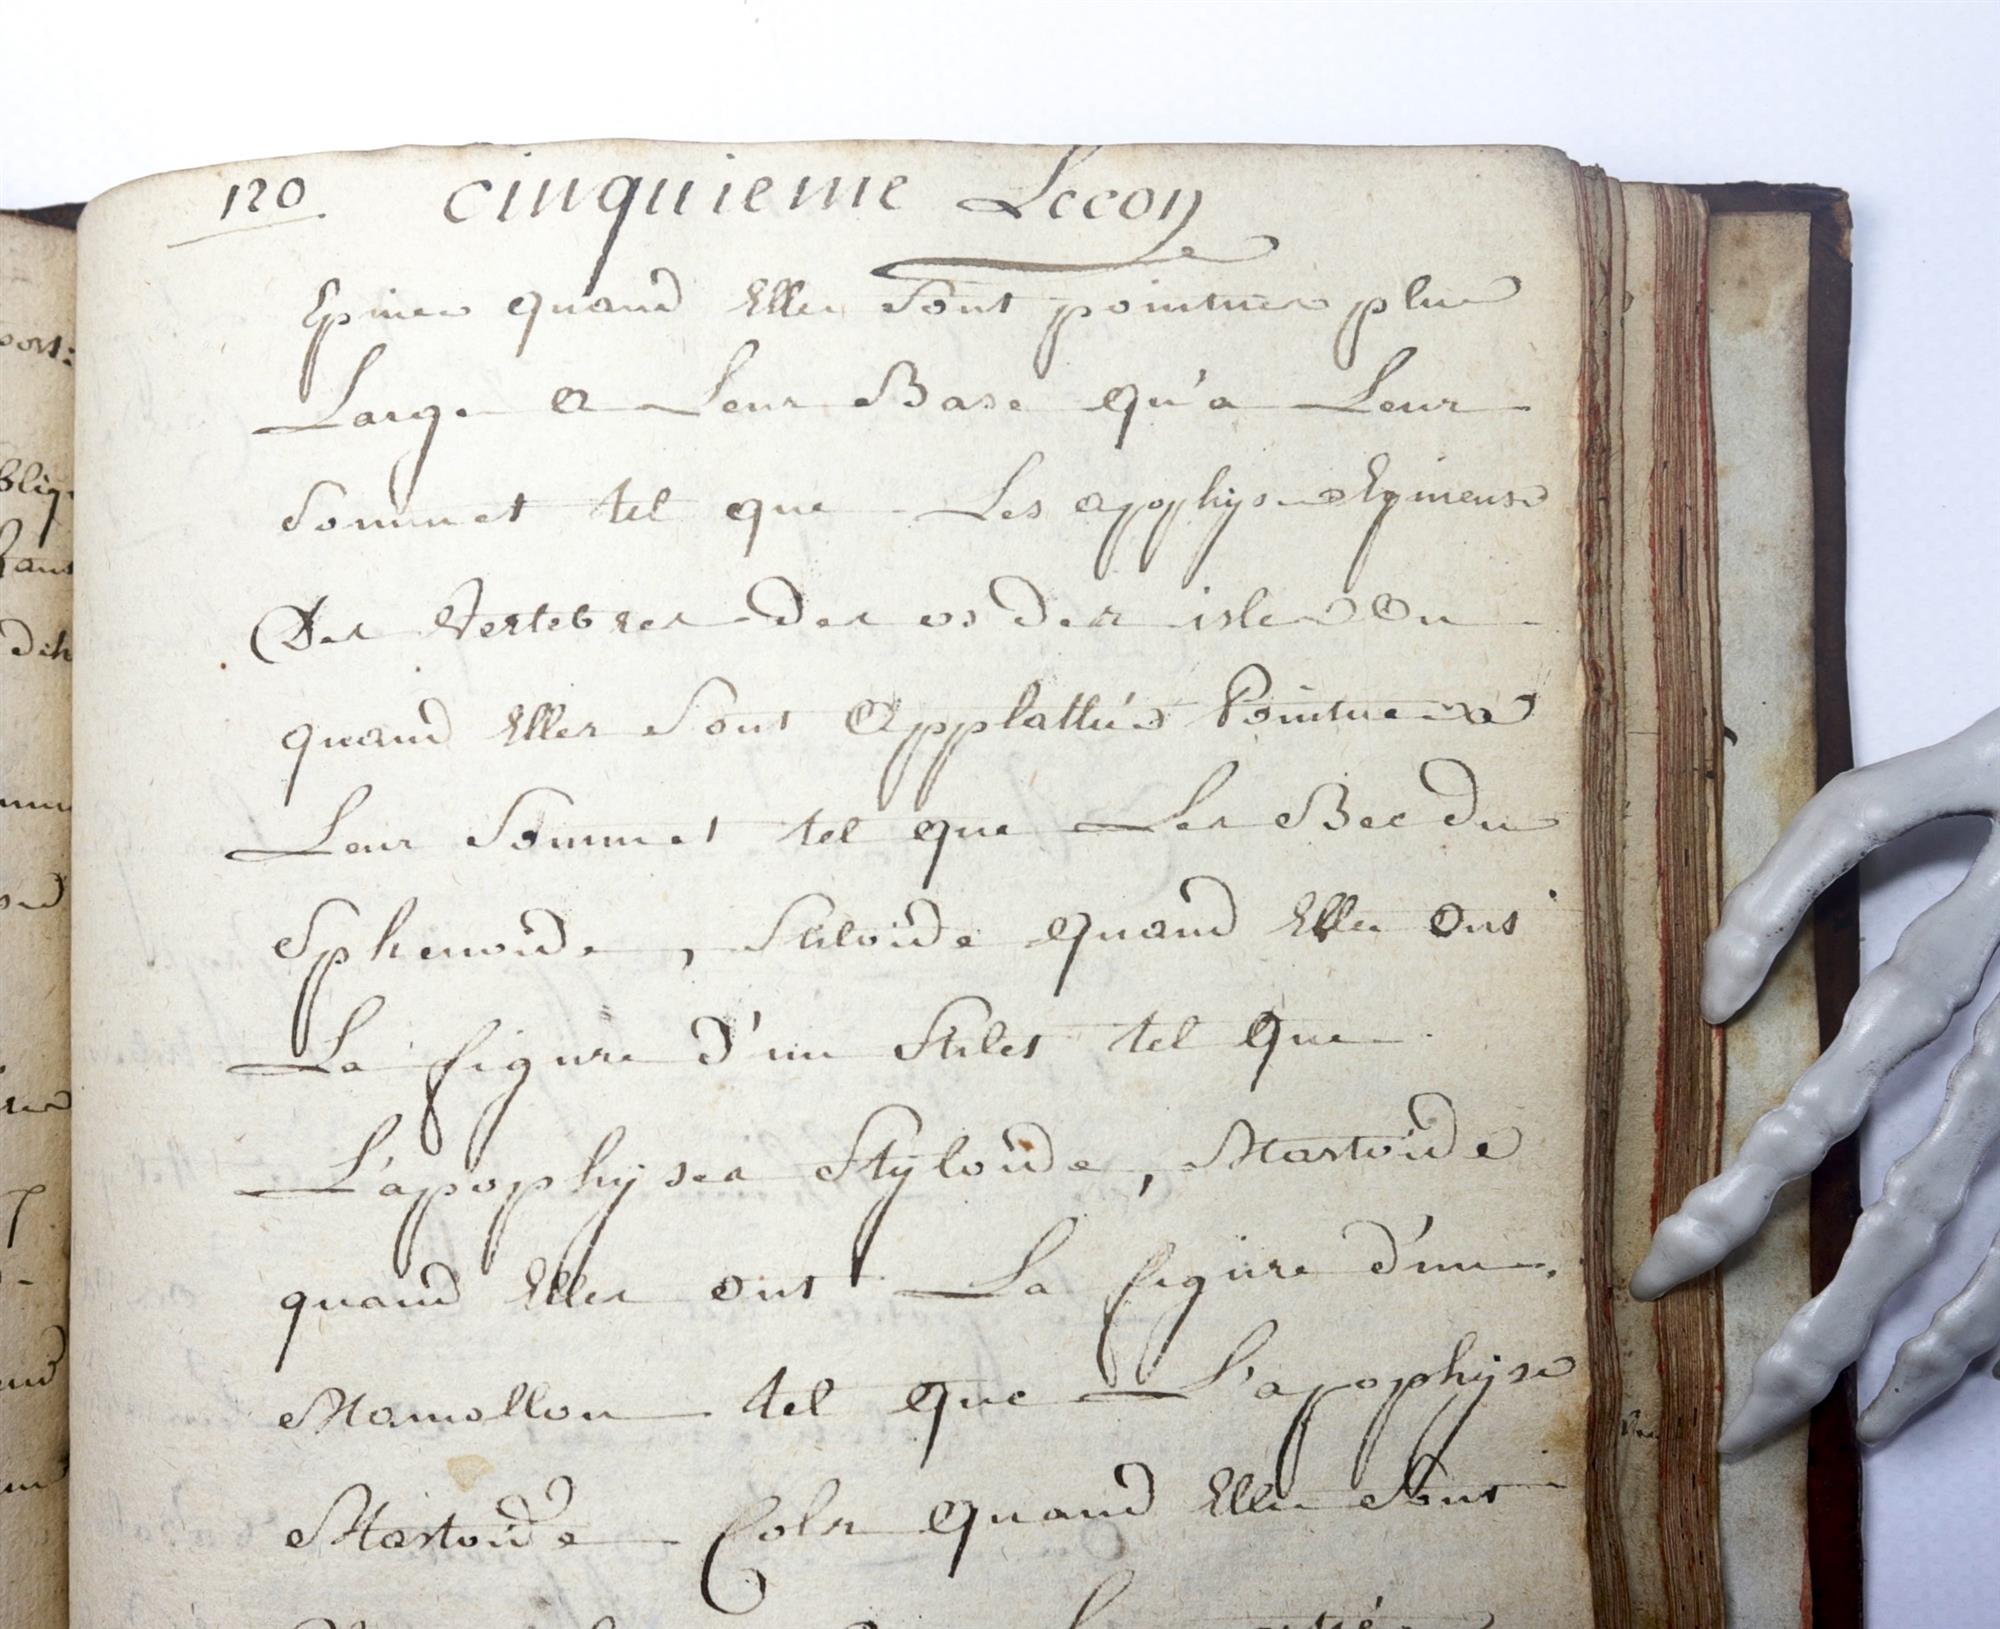 120 cinquieme Lecon
Epines quand Elles Sont pointues plus
Large a Leur Base qu'a Leur
Sommet tel que Les apophyses Epineuse
Des Vertebres des os des isles Ou
quand Elles Sont Applatties Pointues a
Leur Sommet tel que Les Bec du
Sphenoide, Stiloide quand Elles Ont
La figure d'un Stilet tel que
L'apophyses Styloide, Mastoide
quand Elles ont La figure d'un
Mamellon tel que L'apophyse
Mastoide Cols quand Elles Sont